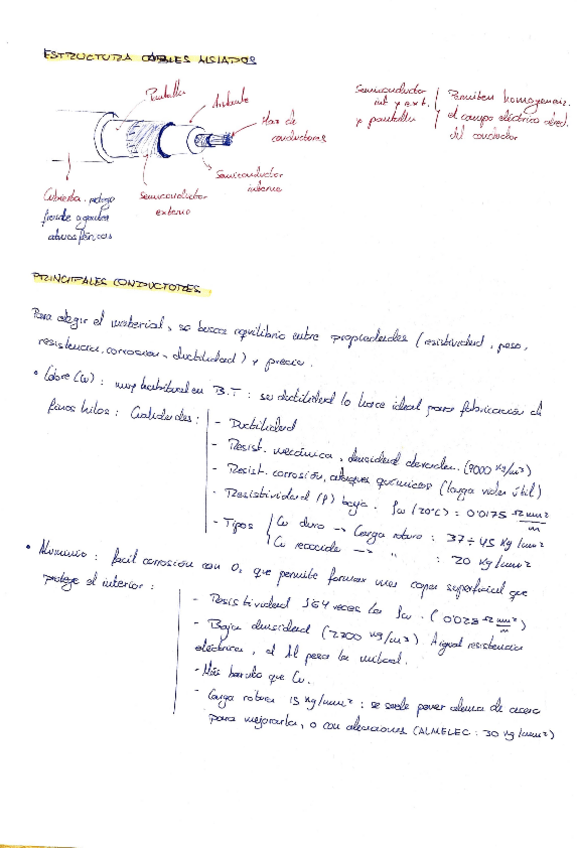 ESTRUCTURA CABLES AISLADOS
Pantalla
Aislante
Haz de
conductores
Semiconductor
interno
Semiconductor
externo
Cubierta. protege
frente agentes
atmosféricos
Semiconductor
int y ext.
y pantalla
Permiten homogeneiz.
el campo eléctrico alred.
del conductor
PRINCIPALES CONDUCTORES
Para elegir el material, se busca equilibrio entre propiedades (resistividad, peso,
resistencia, corrosión, ductilidad) y precio.
• Cobre (Cu): muy habitual en B.T: su ductilidad lo hace ideal para fabricación de
finos hilos: Cualidades:
- Ductilidad
- Resist. mecánica, densidad elevada. (9000 Kg/m³)
- Resist. corrosión, ataques químicos (larga vida útil)
- Resistividad (ρ) baja. ρcu (20°C) = 0'0175 Ω mm²/m
- Tipos
Cu duro → Carga rotura: 37÷45 Kg/mm²
Cu recocido → " : 20 Kg/mm²
• Aluminio: fácil corrosión con O₂ que permite formar una capa superficial que
protege el interior:
- Resistividad 1'64 veces la ρcu. (0'028 Ω mm²/m)
- Baja densidad (2700 Kg/m³) A igual resistencia
eléctrica, el Al pesa la mitad.
- Más barato que Cu.
- Carga rotura 15 Kg/mm²: se suele poner alma de acero
para mejorarla, o con aleaciones (ALMELEC: 30 Kg/mm²)